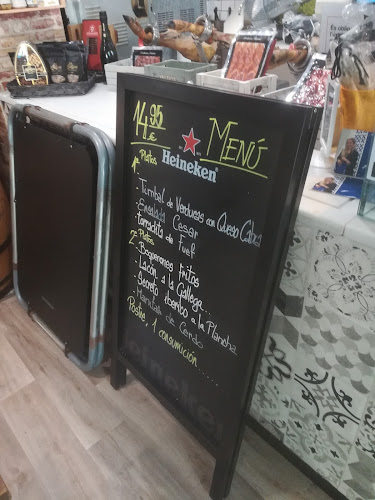 14,95
€
MENÚ
Heineken
1º Platos
- Timbal de Verduras con Queso Cabra
- Ensalada Cesar
- torradita de Fuet
2º Platos
- Boquerones Fritos
- Lacón a la Gallega...
- Secreto Iberico a la Plancha
- Manitas de Cerdo
Postre, 1 consumición....
Heineken